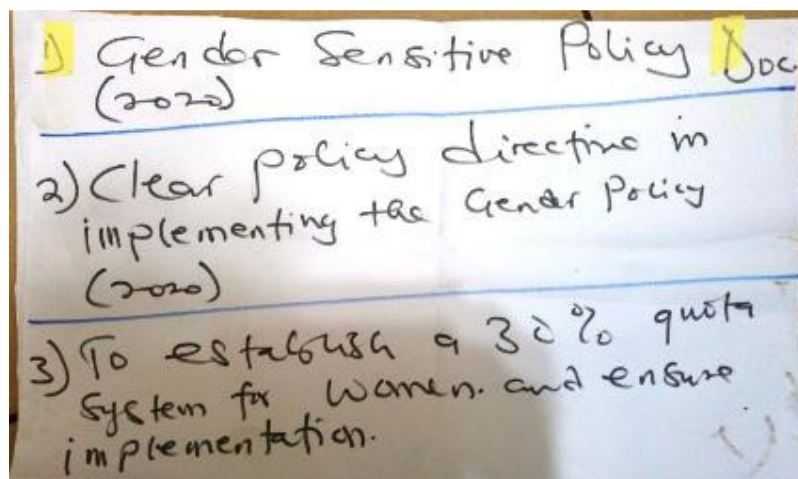 1) Gender Sensitive Policy Doc.
(2020)
2) Clear policy directive in
implementing the Gender Policy
(2020)
3) To establish a 30% quota
system for women. and ensure
implementation.